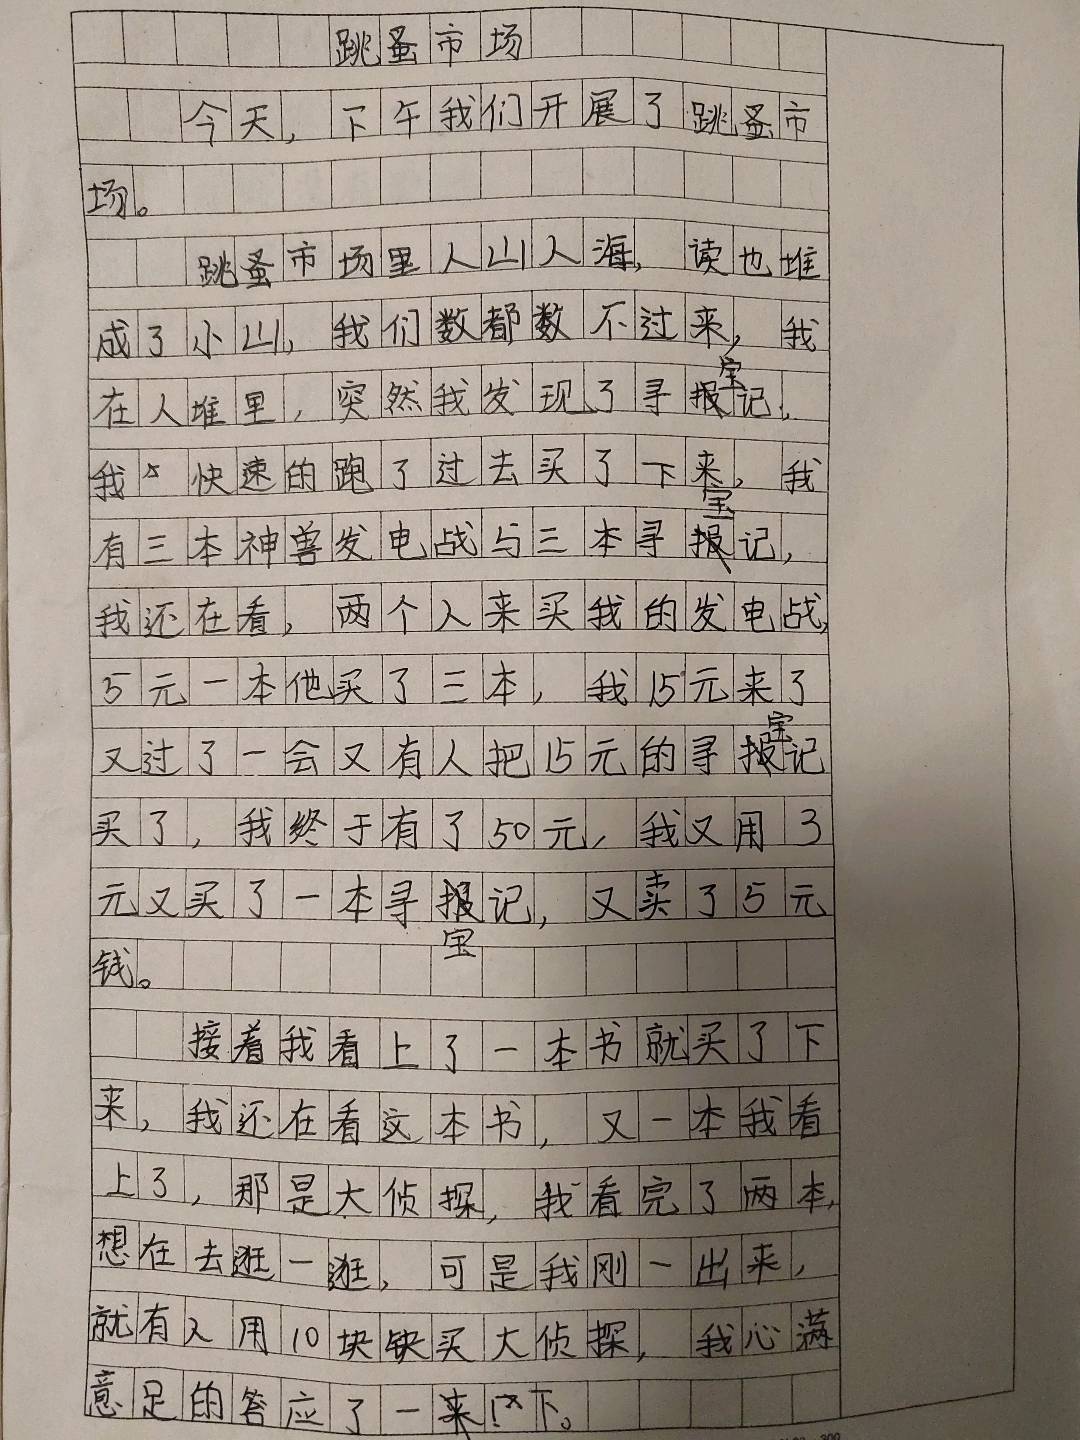 跳蚤市场
今天，下午我们开展了跳蚤市
场。
跳蚤市场里人山人海，读也堆
成了小山，我们数都数不过来，我
在人堆里，突然我发现了寻宝记，
我快速的跑了过去买了下来，我
有三本神兽发电战与三本寻宝记，
我还在看，两个人来买我的发电战，
5元一本他买了三本，我15元来了
又过了一会又有人把15元的寻宝记
买了，我终于有了50元，我又用3
元又买了一本寻宝记，又卖了5元
钱。
接着我看上了一本书就买了下
来，我还在看这本书，又一本我看
上了，那是大侦探，我看完了两本，
想在去逛一逛，可是我刚一出来，
就有人用10块钱买大侦探，我心满
意足的答应了一下。